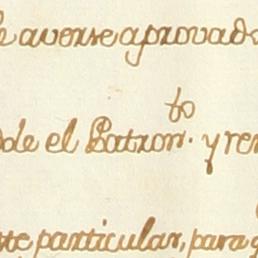 de averse aprovado
dole el Patron.to y ren
te particular, para q